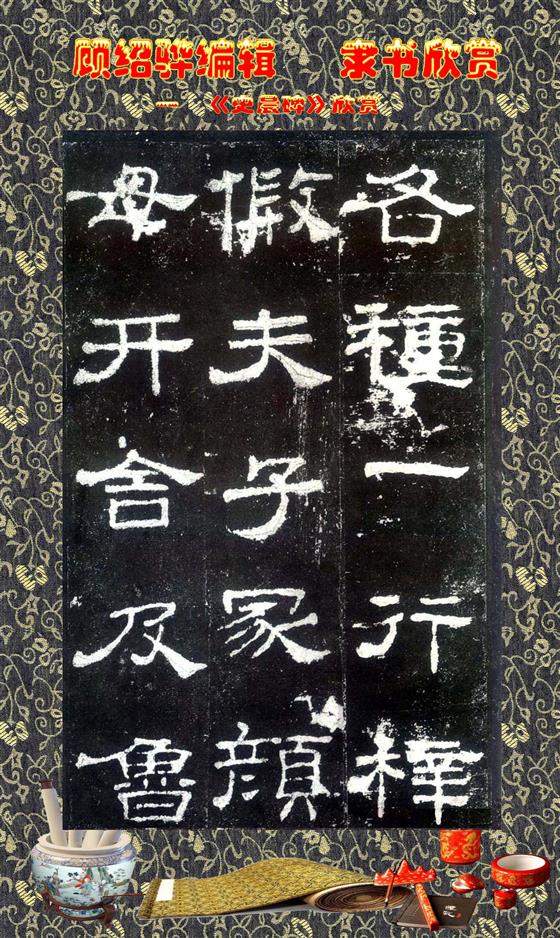 顾绍骅编辑 隶书欣赏
一 《史晨碑》欣赏
各種一行梓
假夫子冢顏
母开舍及魯